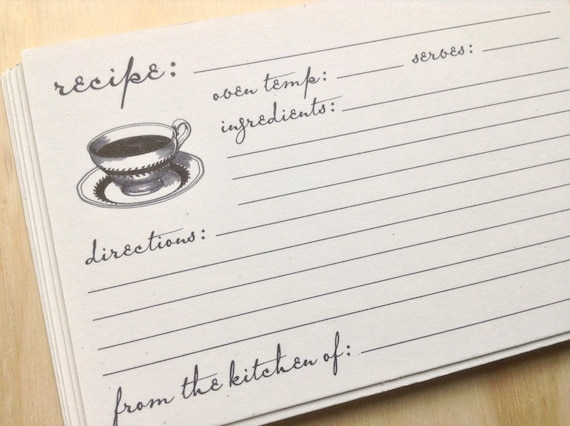 recipe:
oven temp: serves:
ingredients:
directions:
from the kitchen of: